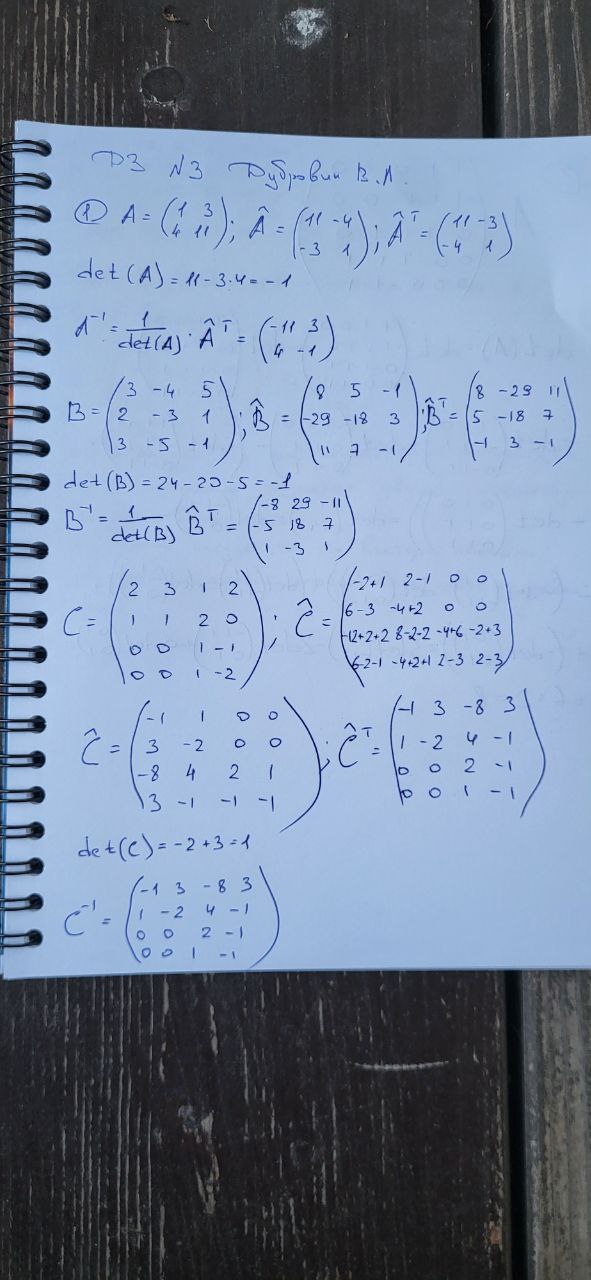 ДЗ №3 Дубровин В.А.
① A = (1 3; 4 11); Â = (11 -4; -3 1); Âᵀ = (11 -3; -4 1)
det(A) = 11 - 3·4 = -1
A⁻¹ = 1/det(A) · Âᵀ = (-11 3; 4 -1)
B = (3 -4 5; 2 -3 1; 3 -5 -1); B̂ = (8 5 -1; -29 -18 3; 11 7 -1); B̂ᵀ = (8 -29 11; 5 -18 7; -1 3 -1)
det(B) = 24 - 20 - 5 = -1
B⁻¹ = 1/det(B) B̂ᵀ = (-8 29 -11; -5 18 7; 1 -3 1)
C = (2 3 1 2; 1 1 2 0; 0 0 1 -1; 0 0 1 -2); Ĉ = (-2+1 2-1 0 0; 6-3 -4+2 0 0; -12+2+2 8-2-2 -4+6 -2+3; 6-2-1 -4+2+1 2-3 2-3)
Ĉ = (-1 1 0 0; 3 -2 0 0; -8 4 2 1; 3 -1 -1 -1); Ĉᵀ = (-1 3 -8 3; 1 -2 4 -1; 0 0 2 -1; 0 0 1 -1)
det(C) = -2 + 3 = 1
C⁻¹ = (-1 3 -8 3; 1 -2 4 -1; 0 0 2 -1; 0 0 1 -1)